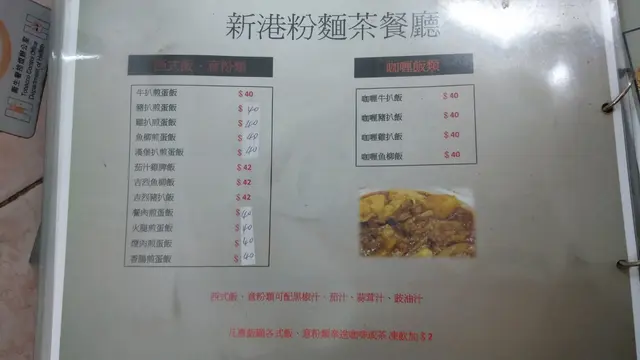 新港粉麵茶餐廳
西式飯、意粉類
牛扒煎蛋飯 $40
豬扒煎蛋飯 $40
雞扒煎蛋飯 $40
魚柳煎蛋飯 $40
漢堡扒煎蛋飯 $40
茄汁雞脾飯 $42
吉烈魚柳飯 $42
吉烈豬扒飯 $42
餐肉煎蛋飯 $40
火腿煎蛋飯 $40
煙肉煎蛋飯 $40
香腸煎蛋飯 $40
咖喱飯類
咖喱牛扒飯 $40
咖喱豬扒飯 $40
咖喱雞扒飯 $40
咖喱魚柳飯 $40
西式飯、意粉類可配黑椒汁、茄汁、蒜茸汁、豉油汁
凡惠顧各式飯、意粉類奉送咖啡或茶 凍飲加$2